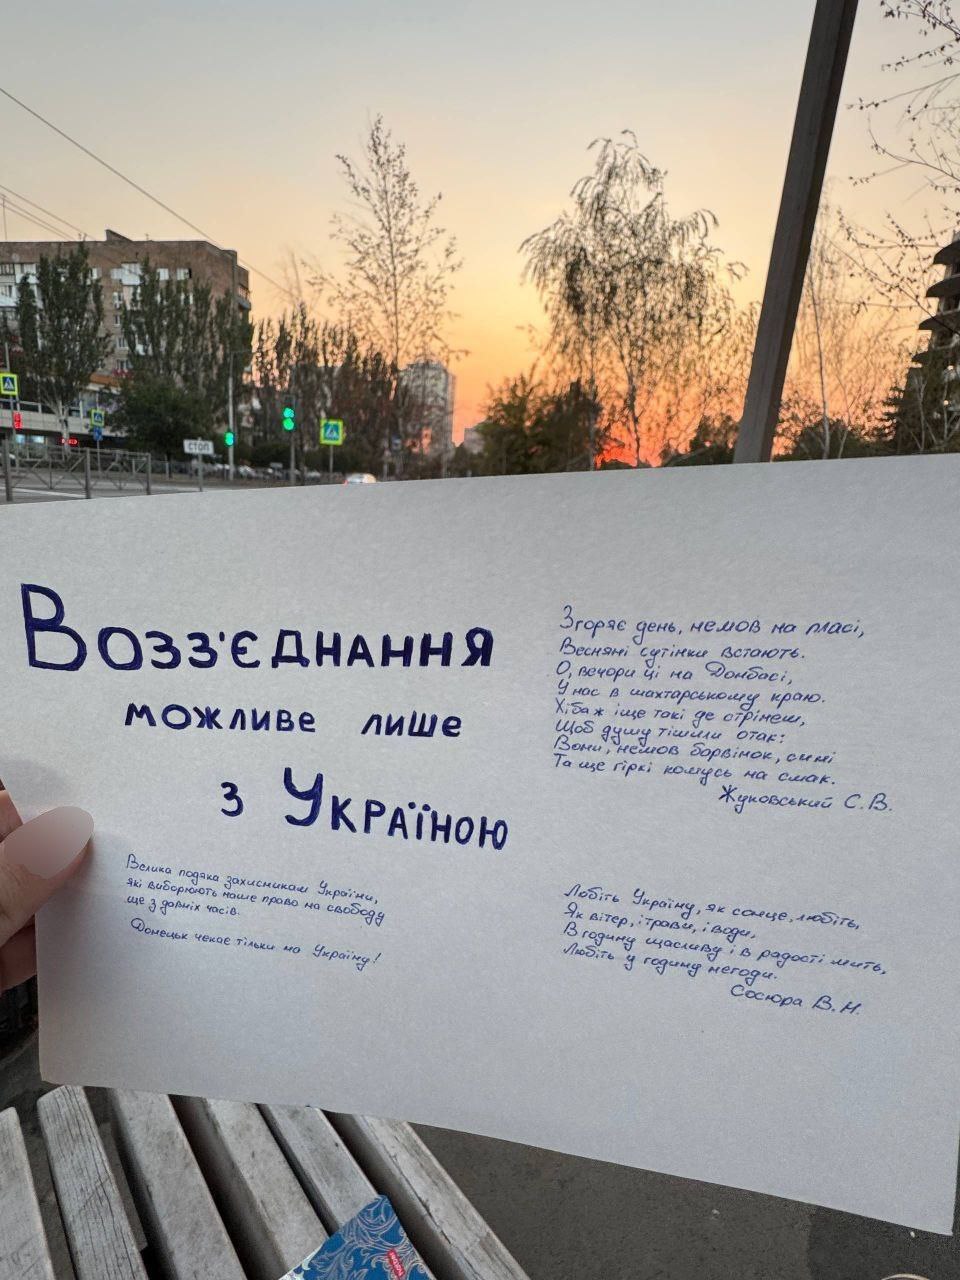 СТОП
Возз'єднання
можливе лише
з Україною
Велика подяка захисникам України,
які виборюють наше право на свободу
ще з давніх часів.
Донецьк чекає тільки на Україну!
Згоряє день, немов на пласі,
Весняні сутінки встають.
О, вечори ці на Донбасі,
У нас в шахтарському краю.
Хіба ж іще такі де стрінеш,
Щоб душу тішили отак:
Вони, немов барвінок, сині
Та ще гіркі комусь на смак.
Жуковський С.В.
Любіть Україну, як сонце, любіть,
Як вітер, і трави, і води,
В годину щасливу і в радості мить,
Любіть у годину негоди.
Сосюра В.Н.